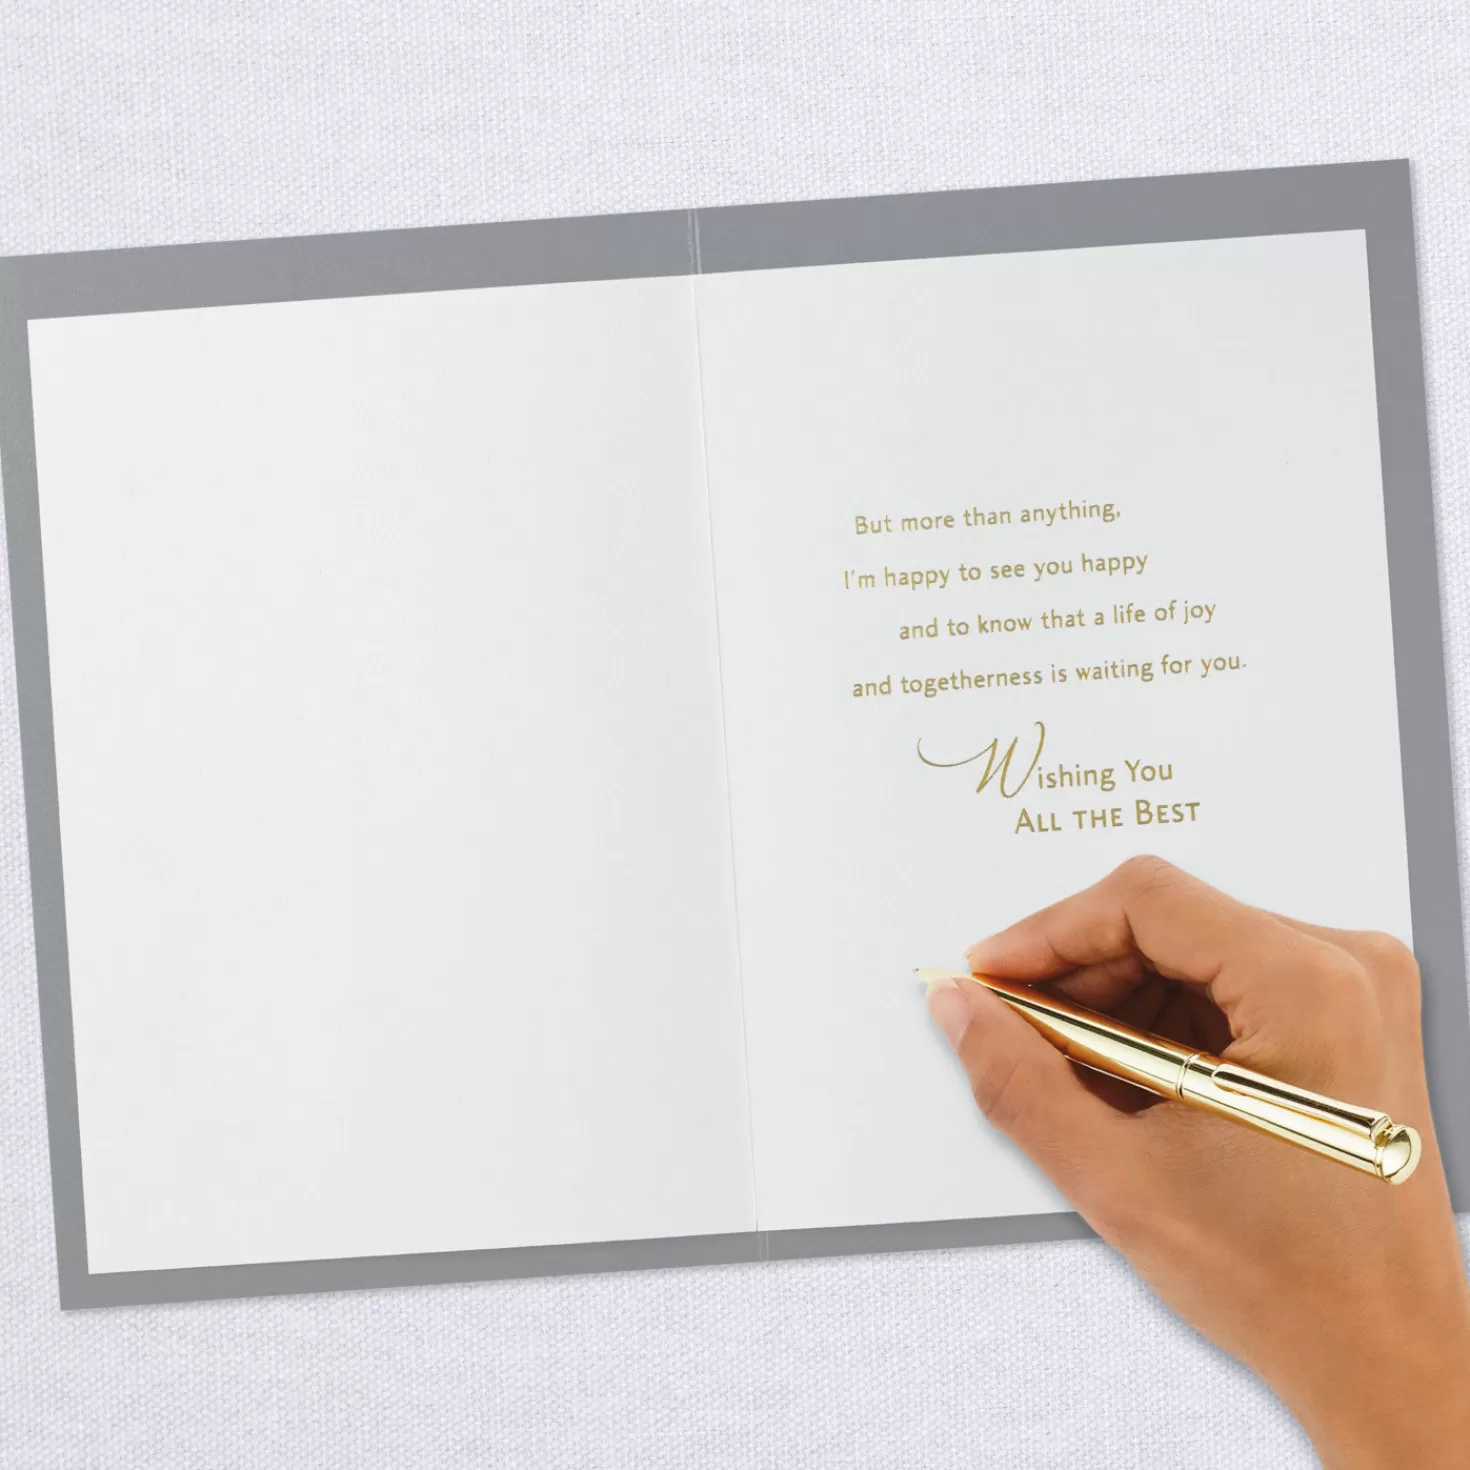 But more than anything,
I'm happy to see you happy
and to know that a life of joy
and togetherness is waiting for you.
Wishing You
ALL THE BEST